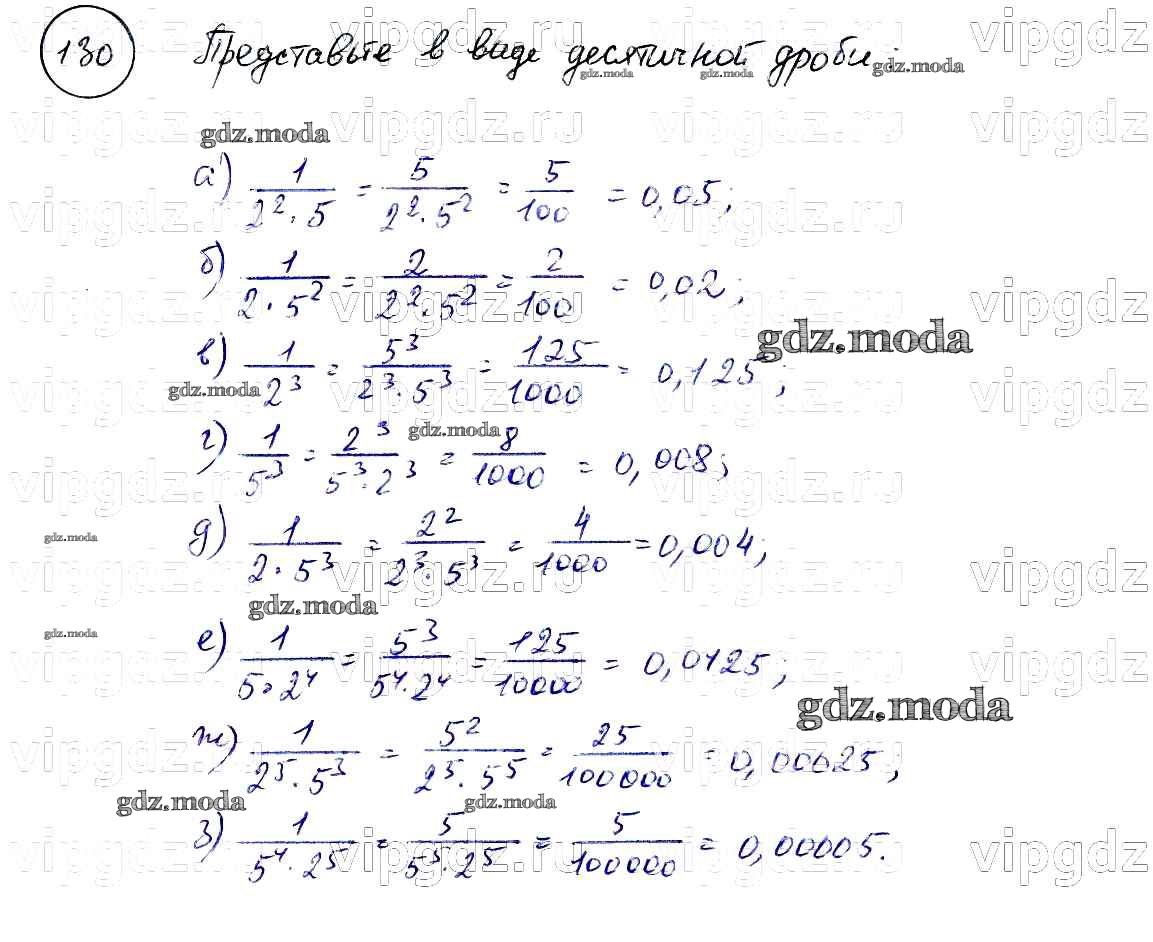 130 Представьте в виде десятичной дроби:
а) 1/(2² · 5) = 5/(2² · 5²) = 5/100 = 0,05;
б) 1/(2 · 5²) = 2/(2² · 5²) = 2/100 = 0,02;
в) 1/2³ = 5³/(2³ · 5³) = 125/1000 = 0,125;
г) 1/5³ = 2³/(5³ · 2³) = 8/1000 = 0,008;
д) 1/(2 · 5³) = 2²/(2³ · 5³) = 4/1000 = 0,004;
е) 1/(5 · 2⁴) = 5³/(5⁴ · 2⁴) = 125/10000 = 0,0125;
ж) 1/(2⁵ · 5³) = 5²/(2⁵ · 5⁵) = 25/100000 = 0,00025;
з) 1/(5⁴ · 2⁵) = 5/(5⁵ · 2⁵) = 5/100000 = 0,00005.
gdz.moda
vipgdz.ru